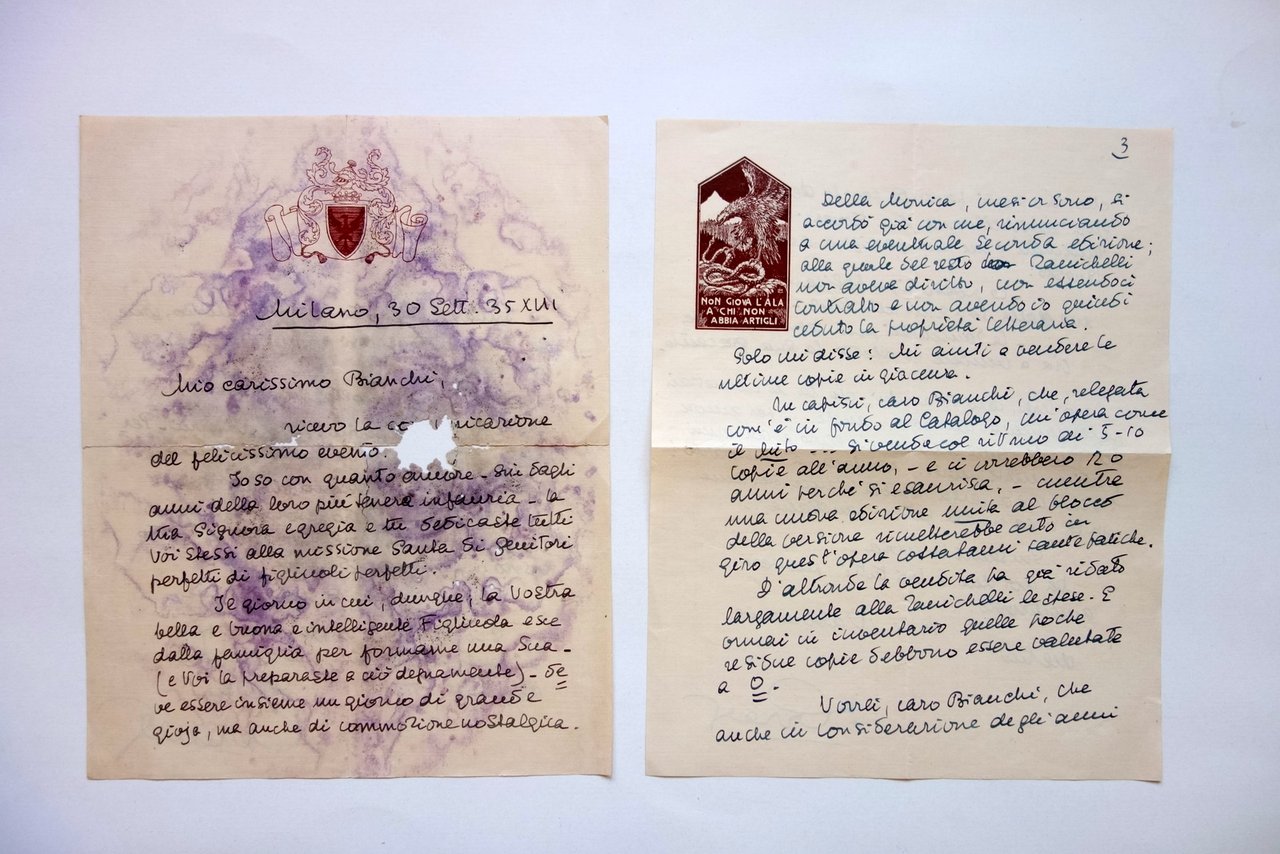 Milano, 30 Sett. 35 XIII
Mio carissimo Bianchi,
ricevo la co nicazione
del felicissimo evento.
Io so con quanto amore - sin dagli
anni della loro più tenera infanzia - la
tua Signora egregia e tu dedicaste tutti
voi stessi alla missione santa di genitori
perfetti di figliuoli perfetti.
Il giorno in cui, dunque, la vostra
bella e buona e intelligente Figliuola esce
dalla famiglia per formarne una Sua -
(e Voi la preparaste a ciò degnamente) - de
ve essere insieme un giorno di grande
gioja, ma anche di commozione nostalgica.
3
NON GIOVA L'ALA
A CHI NON
ABBIA ARTIGLI
Della Monica, mesi or sono, si
accordò già con me, rinunciando
a una eventuale seconda edizione;
alla quale del resto Zanichelli
non aveva diritto, non essendoci
contratto e non avendo io quindi
ceduto la proprietà letteraria.
Solo mi disse: Mi aiuti a vendere le
ultime copie in giacenza.
Tu capisci, caro Bianchi, che, relegata
com'è in fondo al Catalogo, un'opera come
il si venda col ritmo di 5-10
copie all'anno, - e ci vorrebbero 20
anni perché si esaurisca, - mentre
una nuova edizione unita al blocco
della versione rimetterebbe certo in
giro quest'opera costatami tante fatiche.
D'altronde la vendita ha già ridato
largamente alla Zanichelli le spese. E
ormai in inventario quelle poche
residue copie debbono essere valutate
a 0.
Vorrei, caro Bianchi, che
anche in considerazione degli anni